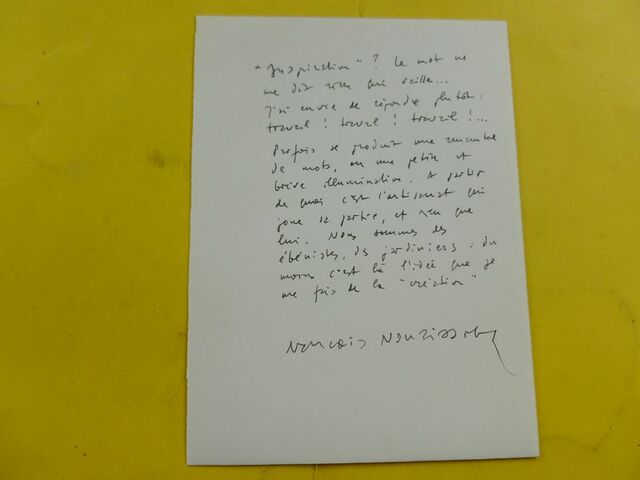 "Inspiration" ? Le mot ne
me dit rien qui vaille...
J'ai envie de répondre plutôt :
travail ! travail ! travail !...
Parfois se produit une rencontre
de mots, ou une petite et
brève illumination. A partir
de quoi c'est l'artisanat qui
joue sa partie, et rien que
lui. Nous sommes des
ébénistes, des jardiniers : du
moins c'est là l'idée que je
me fais de la "création"
François Nourissier